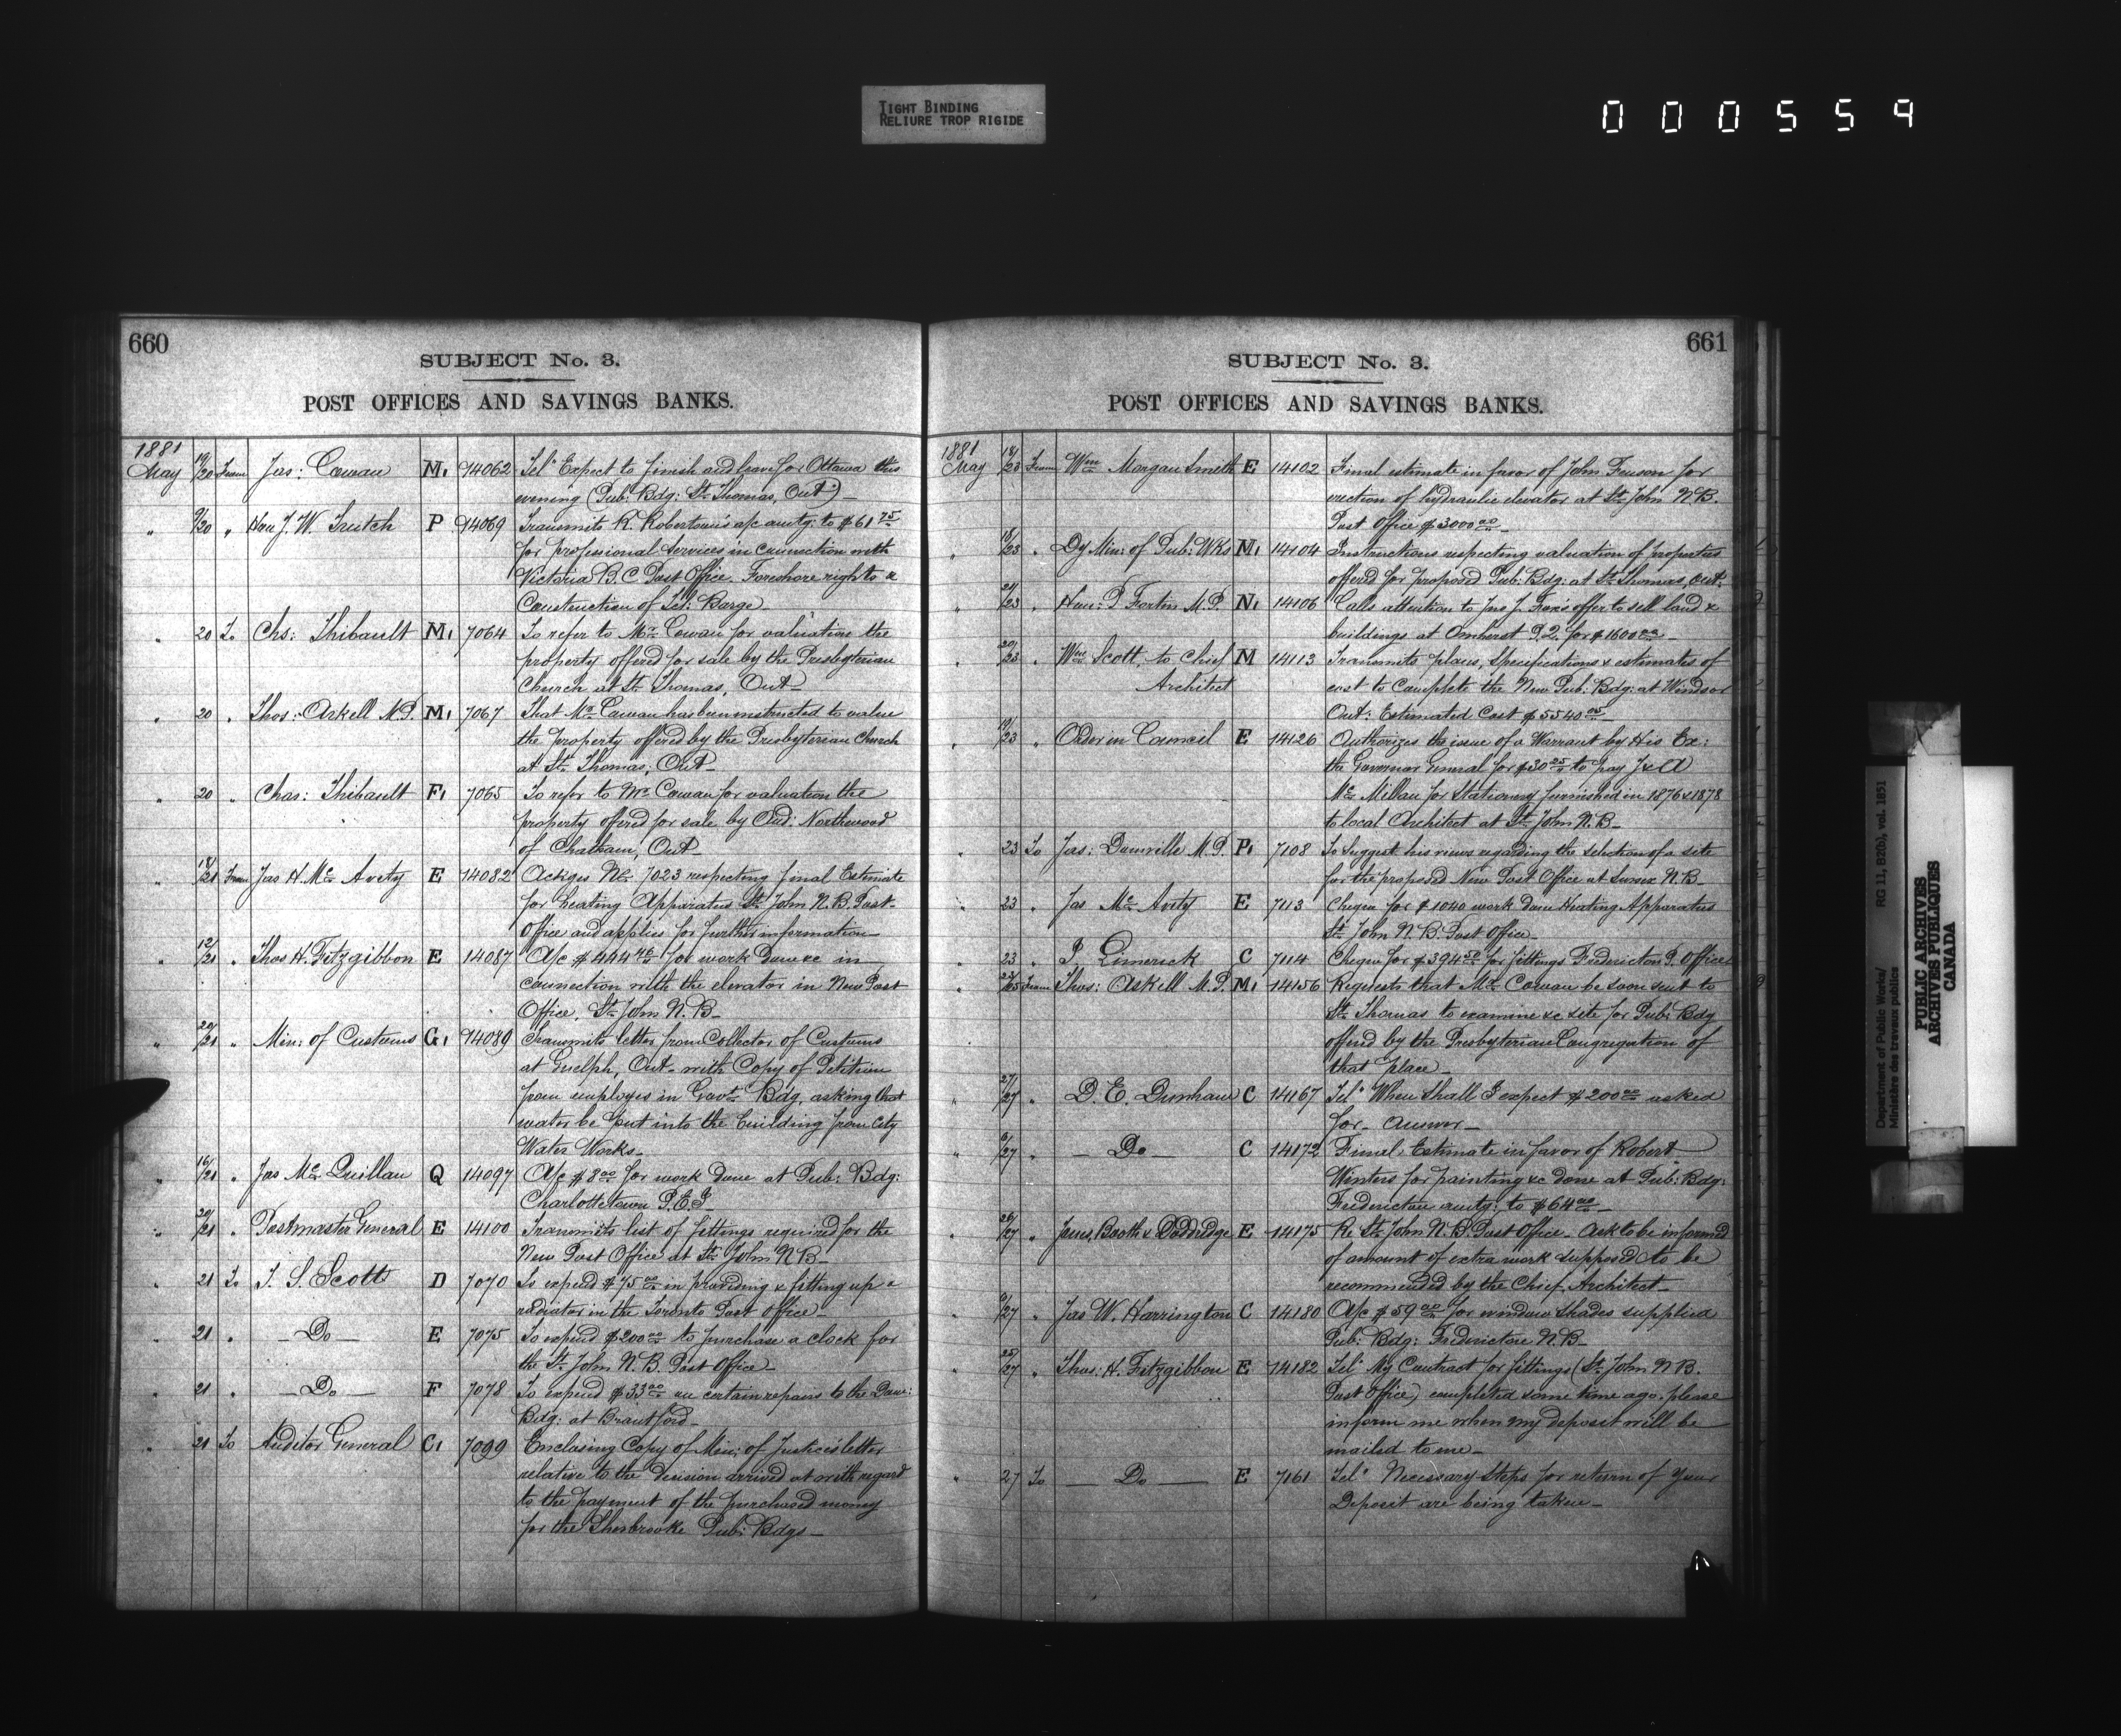 TIGHT BINDING
RELIURE TROP RIGIDE
000559
660
SUBJECT No. 3.
POST OFFICES AND SAVINGS BANKS.
1881
May 19/20 From Jas: Cowan M1 14062 Tel: Expect to finish and leave for Ottawa this
evening (Pub: Bdg: St. Thomas, Ont:)
" /20 " Hon J. W. Trutch P 14069 Transmits R. Robertson's a/c amtg: to $61.75
for professional services in connection with
Victoria B.C. Post Office. Foreshore rights &
Construction of Barge
" 20 To Chs: Thibault M1 7064 To refer to Mr. Cowan for valuation the
property offered for sale by the Presbyterian
Church at St. Thomas, Ont
" 20 " Thos: Arkell M.P. M1 7067 That Mr. Cowan has been instructed to value
the property offered by the Presbyterian Church
at St. Thomas, Ont
" 20 " Chas: Thibault F1 7065 To refer to Mr. Cowan for valuation the
property offered for sale by Northwood
of Chatham, Ont
" 18/21 From Jas H. McAvity E 14082 Ackges No. 7023 respecting final Estimate
for heating Apparatus St. John N.B. Post
Office and applies for further information
" 12/21 " Thos H. Fitzgibbon E 14087 A/c $444.46 for work done &c in
connection with the elevator in New Post
Office, St. John N.B
" 20/21 " Min: of Customs G1 14089 Transmits letter from Collector of Customs
at Guelph, Ont. with Copy of Petition
from employes in Govt. Bdg, asking that
water be put into the building from City
Water Works
" 16/21 " Jas McQuillan Q 14097 A/c $8.00 for work done at Pub: Bdg:
Charlottetown P.E.I
" 20/21 " Postmaster General E 14100 Transmits list of fittings required for the
New Post Office at St. John N.B
" 21 To T. S. Scott D 7070 To expend $75.00 in providing & fitting up a
radiator in the Toronto Post Office
" 21 " Do E 7075 To expend $200.00 to purchase a clock for
the St. John N.B. Post Office
" 21 " Do F 7078 To expend $33.00 on certain repairs to the Dom:
Bdg: at Brantford
" 21 To Auditor General C1 7099 Enclosing Copy of Min: of Justice's letter
relative to the decision arrived at with regard
to the payment of the purchased money
for the Sherbrooke Pub: Bdgs
661
SUBJECT No. 3.
POST OFFICES AND SAVINGS BANKS.
1881
May 18/23 From Wm Morgan Smith E 14102 Final estimate in favor of John Fenson for
erection of hydraulic elevator at St. John N.B.
Post Office $3000.00
" 18/23 " Dy Min: of Pub: Wks M1 14104 Instructions respecting valuation of properties
offered for proposed Pub: Bdg: at St. Thomas, Ont:
" 21/23 " Hon: P Fortin M.P. N1 14106 Calls attention to Jno J. Fox's offer to sell land &
buildings at Amherst P.Q. for $1600.00
" 20/23 " Wm Scott, to Chief M 14113 Transmits plans, specifications & estimates of
Architect cost to complete the New Pub: Bdg: at Windsor
Ont: Estimated Cost $5540.05
" 19/23 " Order in Council E 14126 Authorizes the issue of a Warrant by His Ex:
the Governor General for $30.25 to pay J & A
McMillan for Stationery furnished in 1876 & 1878
to local Architect at St. John N.B
" 23 To Jas: Domville M.P. P1 7108 To suggest his views regarding the selection of a site
for the proposed New Post Office at Sussex N.B
" 23 " Jas McAvity E 7113 Cheque for $1040 work done Heating Apparatus
St. John N.B. Post Office
" 23 " P Limerick C 7114 Cheque for $394.50 for fittings Fredericton P. Office
" /25 From Thos: Arkell M.P. M1 14156 Requests that Mr. Cowan be soon sent to
St. Thomas to examine &c site for Pub: Bdg
offered by the Presbyterian Congregation of
that place
" 27/27 " D. E. Dunham C 14167 Tel: When shall I expect $200.00 asked
for. Answer
" /27 " Do C 14172 Final Estimate in favor of Robert
Winters for painting &c done at Pub: Bdg:
Fredericton amtg: to $64.00
" 26/27 " Jones, Booth & Doddridge E 14175 Re St. John N.B. Post Office. Ask to be informed
of amount of extra work supposed to be
recommended by the Chief Architect
/27 " Jas W. Harrington C 14180 A/c $59.00 for window shades supplied
Pub: Bdg: Fredericton N.B
" 25/27 " Thos: H. Fitzgibbon E 14182 Tel: My Contract for fittings (St. John N.B.
Post Office) completed some time ago. please
inform me when my deposit will be
mailed to me
" 27 To Do E 7161 Tel: Necessary Steps for return of your
Deposit are being taken
Department of Public Works/ RG 11, B2(b), vol. 1851
Ministère des travaux publics
PUBLIC ARCHIVES
ARCHIVES PUBLIQUES
CANADA